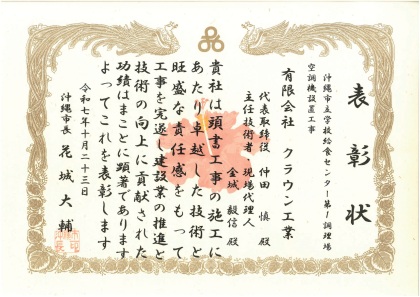 表彰状
沖縄市立学校給食センター第1調理場
空調機設置工事
有限会社 クラウン工業
代表取締役 仲田 慎 殿
主任技術者・現場代理人
金城 毅信 殿
貴社は頭書工事の施工に
あたり卓越した技術と
旺盛な責任感をもって
工事を完遂し建設業の推進と
技術の向上に貢献された
功績はまことに顕著であります
よってこれを表彰します
令和七年十月二十三日
沖縄市長 花城大輔